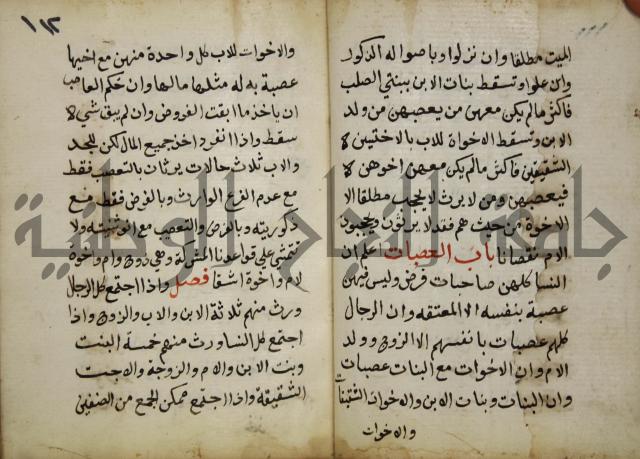 الميت مطلقا وان نزلوا وباصوله الذكور
وان علوا وتسقط بنات الابن ببنتي الصلب
فاكثر مالم يكن معهن من يعصبهن من ولد
الابن وتسقط الاخواة للاب بالاختين لا
الشقيقتين فاكثر مالم يكن معهن اخوهن لا
فيعصبهن ومن لا يرث لا يحجب مطلقا الا
الاخوة من حيث هم فقد لا يرثون ويحجبون
الام نقصانا باب العصبات اعلم ان
النسا كلهن صاحبات فرض وليس فيهن
عصبة بنفسه الا المعتقه وان الرجال
كلهم عصبات بانفسهم الا الزوج وولد
الام وان الاخوات مع البنات عصبات
وان البنات وبنات الابن والاخوات الشقيقات
والاخوات
١١٢
والاخوات للاب كل واحدة منهن مع اخيها
عصبة به له مثلها مالها وان حكم العاصب
ان ياخذ ما ابقت الفروض وان لم يبق شي لا
سقط واذا انفرد اخذ جميع المال لكن للجد
والاب ثلاث حالات يرثان بالتعصب فقط
مع عدم الفرع الوارث وبالفرض فقط مع
ذكوريته وبالفرض والتعصب مع انوثيته ولا
تتمشى على قواعدنا المشركة وهي زوج وام واخوة
لام واخوة اشقا فصل واذا اجتمع كل الرجال
ورث منهم ثلاثة الابن والاب والزوج واذا
اجتمع كل النسا ورث منهم خمسة البنت
وبنت الابن والام والزوجة والاخت
الشقيقة واذا اجتمع ممكن الجمع من الصنفين
جامعة النجاح الوطنية